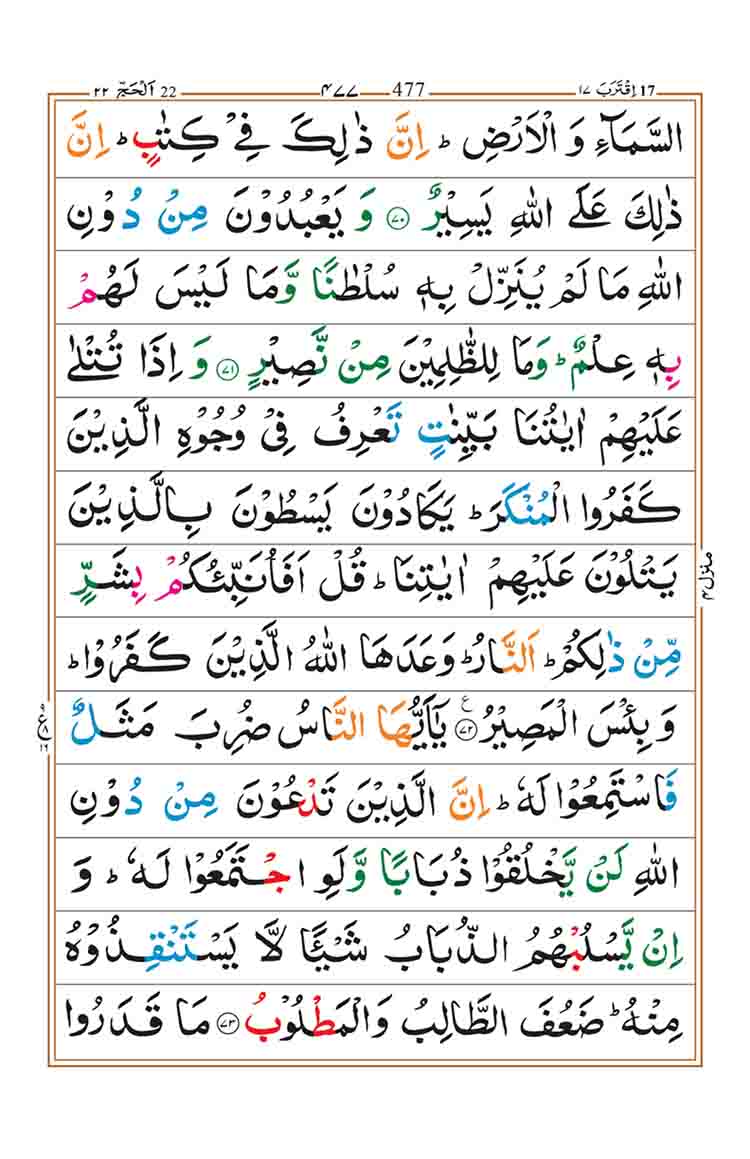 ١٧ اِقْتَرَبَ 17 ٤٧٧ 477 ٢٢ اَلْحَجّ 22
السَّمَآءِ وَ الْاَرْضِ ؕ اِنَّ ذٰلِكَ فِیْ كِتٰبٍ ؕ اِنَّ
ذٰلِكَ عَلَی اللّٰهِ یَسِیْرٌ ﴿۷۰﴾ وَ یَعْبُدُوْنَ مِنْ دُوْنِ
اللّٰهِ مَا لَمْ یُنَزِّلْ بِهٖ سُلْطٰنًا وَّ مَا لَیْسَ لَهُمْ
بِهٖ عِلْمٌ ؕ وَ مَا لِلظّٰلِمِیْنَ مِنْ نَّصِیْرٍ ﴿۷۱﴾ وَ اِذَا تُتْلٰی
عَلَیْهِمْ اٰیٰتُنَا بَیِّنٰتٍ تَعْرِفُ فِیْ وُجُوْهِ الَّذِیْنَ
كَفَرُوا الْمُنْكَرَ ؕ یَكَادُوْنَ یَسْطُوْنَ بِالَّذِیْنَ
یَتْلُوْنَ عَلَیْهِمْ اٰیٰتِنَا ؕ قُلْ اَفَاُنَبِّئُكُمْ بِشَرٍّ
مِّنْ ذٰلِكُمْ ؕ اَلنَّارُ ؕ وَعَدَهَا اللّٰهُ الَّذِیْنَ كَفَرُوْا ؕ
وَ بِئْسَ الْمَصِیْرُ ﴿۷۲﴾ ع یٰۤاَیُّهَا النَّاسُ ضُرِبَ مَثَلٌ
فَاسْتَمِعُوْا لَهٗ ؕ اِنَّ الَّذِیْنَ تَدْعُوْنَ مِنْ دُوْنِ
اللّٰهِ لَنْ یَّخْلُقُوْا ذُبَابًا وَّ لَوِ اجْتَمَعُوْا لَهٗ ؕ وَ
اِنْ یَّسْلُبْهُمُ الذُّبَابُ شَیْـًٔا لَّا یَسْتَنْقِذُوْهُ
مِنْهُ ؕ ضَعُفَ الطَّالِبُ وَ الْمَطْلُوْبُ ﴿۷۳﴾ مَا قَدَرُوا
منزل ٤
ع ٨